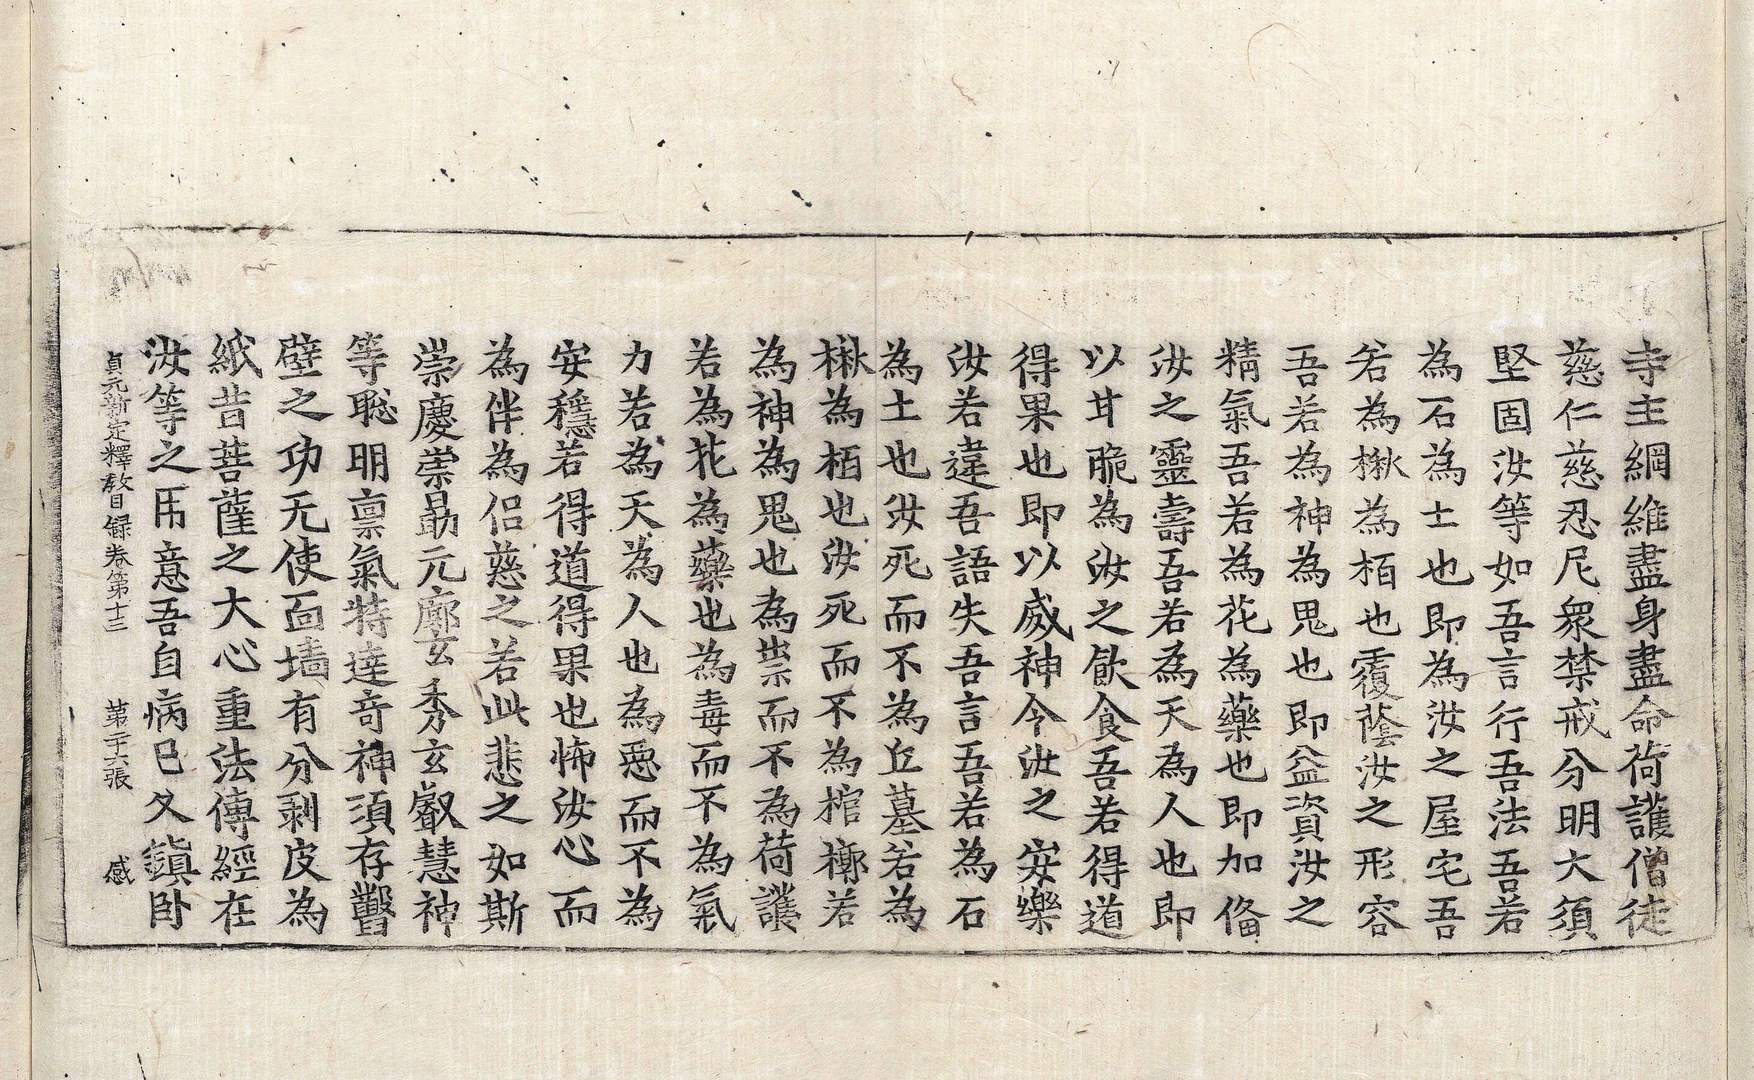 寺主綱維盡身盡命荷護僧徒
慈仁慈忍尼衆禁戒分明大須
堅固汝等如吾言行吾法吾若
為石為土也即為汝之屋宅吾
若為楸為栢也覆蔭汝之形容
吾若為神為鬼也即益資汝之
精氣吾若為花為藥也即加俻
汝之靈壽吾若為天為人也即
以甘脆為汝之飲食吾若得道
得果也即以威神令汝之安樂
汝若違吾語失吾言吾若為石
為土也汝死而不為丘墓若為
楸為栢也汝死而不為棺槨若
為神為鬼也為祟而不為荷護
若為花為藥也為毒而不為氣
力若為天為人也為惡而不為
安穩若得道得果也怖汝心而
為伴為侶慈之若此悲之如斯
崇慶崇勗元廓玄秀玄叡慧神
等聡明禀氣特達竒神須存鑿
壁之功无使面墻有分剥皮為
紙昔菩薩之大心重法傳經在
汝等之用意吾自病已久鎮卧
貞元新定釋教目録卷第十三 第二十六張 感